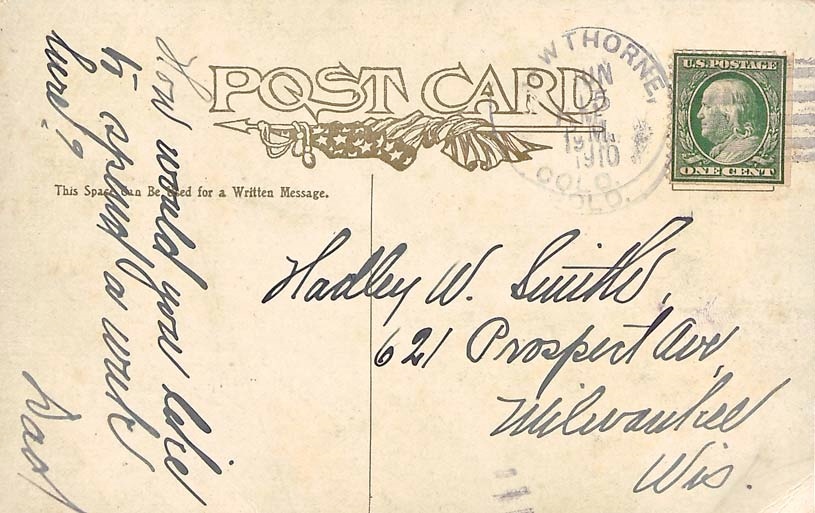 POST CARD
This Space Can Be Used for a Written Message.
How would you like
to spend a week
here?
WTHORNE,
JUN
1910
COLO.
U.S. POSTAGE
ONE CENT
Hadley W. Smith,
621 Prospect Ave,
Milwaukee
Wis.